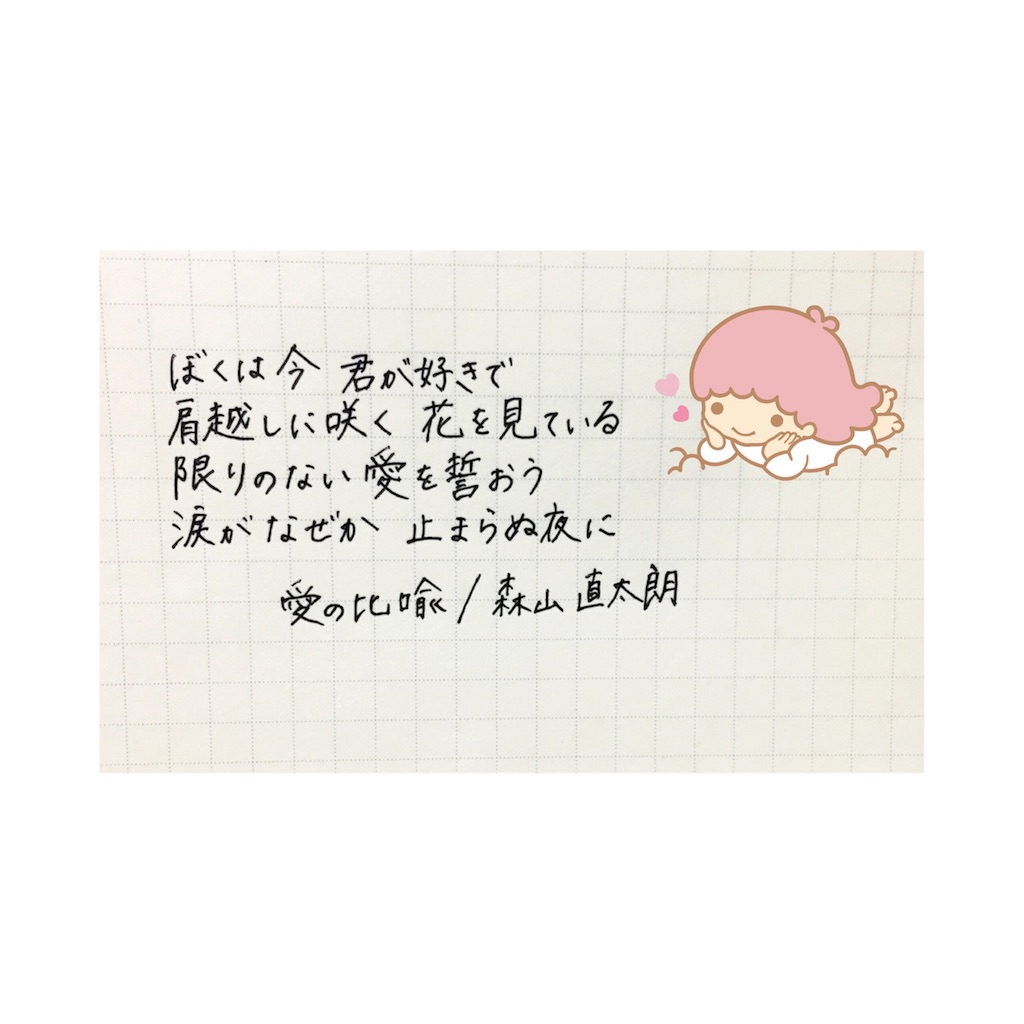 ぼくは今 君が好きで
肩越しに咲く 花を見ている
限りのない愛を誓おう
涙がなぜか 止まらぬ夜に
愛の比喩/森山直太朗